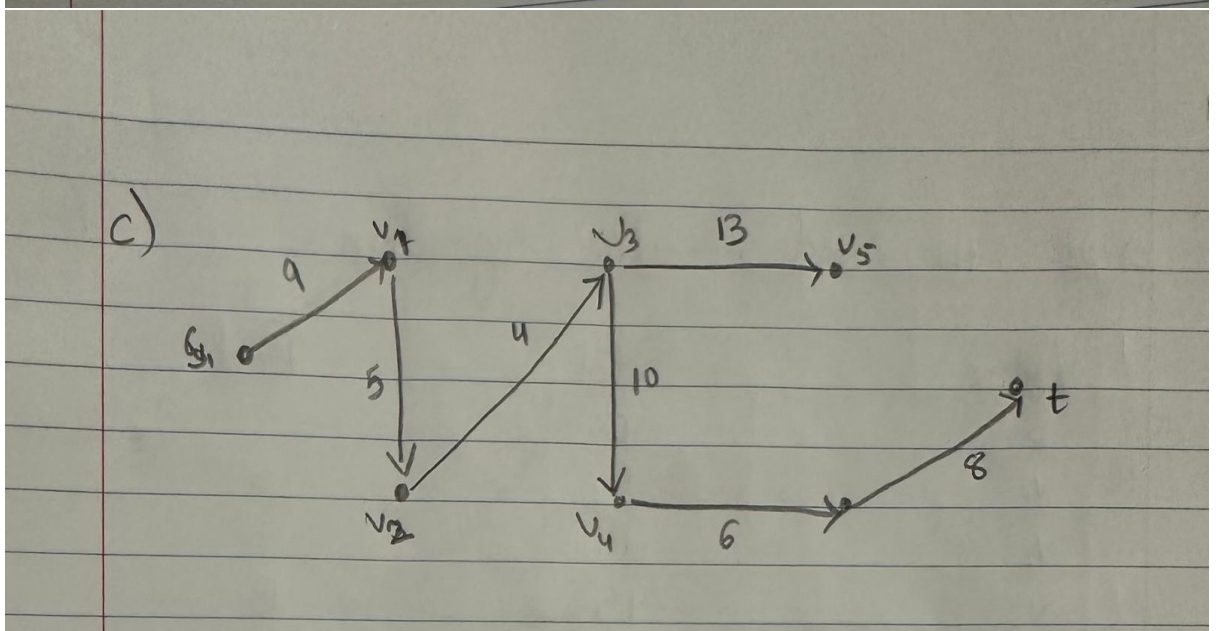 c)
v1
v3
13
v5
9
4
5
10
t
8
v2
v4
6